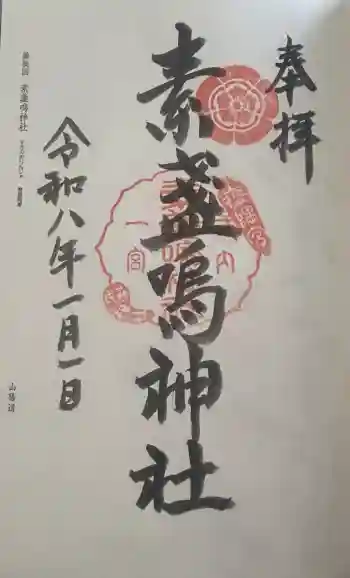 奉拝
素盞嗚神社
一宮
内
令和八年一月一日
素盞嗚神社
山陽道